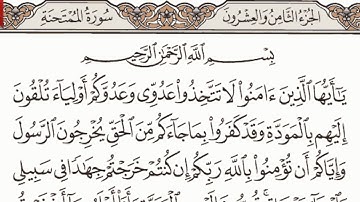 سُورَةُ المُمْتَحنَةِ الجُزْءُ الثَّامِنُ وَالعِشْرُونَ
بِسْمِ اللَّهِ الرَّحْمَٰنِ الرَّحِيمِ
يَٰٓأَيُّهَا ٱلَّذِينَ ءَامَنُوا۟ لَا تَتَّخِذُوا۟ عَدُوِّى وَعَدُوَّكُمْ أَوْلِيَآءَ تُلْقُونَ
إِلَيْهِم بِٱلْمَوَدَّةِ وَقَدْ كَفَرُوا۟ بِمَا جَآءَكُم مِّنَ ٱلْحَقِّ يُخْرِجُونَ ٱلرَّسُولَ
وَإِيَّاكُمْ أَن تُؤْمِنُوا۟ بِٱللَّهِ رَبِّكُمْ إِن كُنتُمْ خَرَجْتُمْ جِهَٰدًا فِى سَبِيلِى